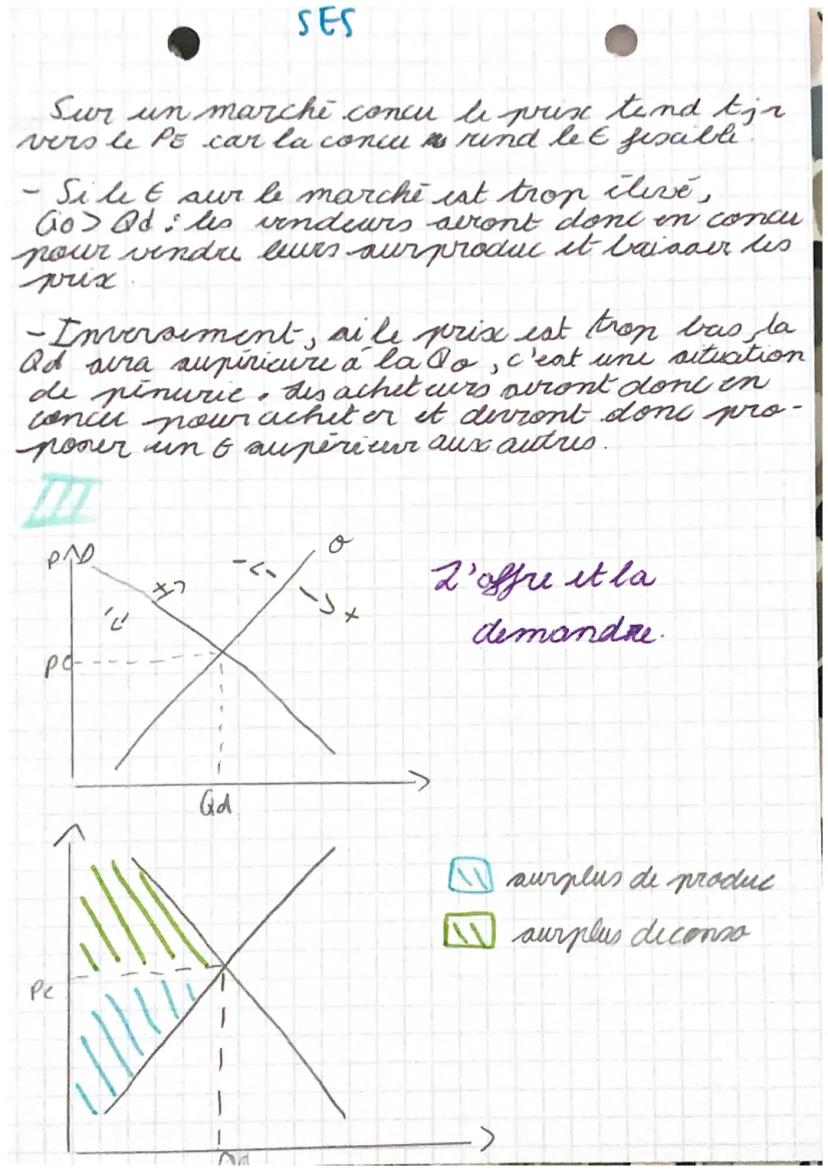 SES
Sur un marché concu le prix tend tjr
vers le PE car la concu rend le € flexible.
- Si le € sur le marché est trop élevé,
Qo > Qd : les vendeurs seront donc en concu
pour vendre leurs surproduc et baisser les
prix.
- Inversement, si le prix est trop bas, la
Qd sera supérieure à la Qo, c'est une situation
de pénurie. Les acheteurs seront donc en
concu pour acheter et devront donc pro-
poser un € supérieur aux autres.
III
P D
- O
+
+
-
L'offre et la
demande.
Pe
Qd
surplus de produc
surplus de conso
Pe
Qd